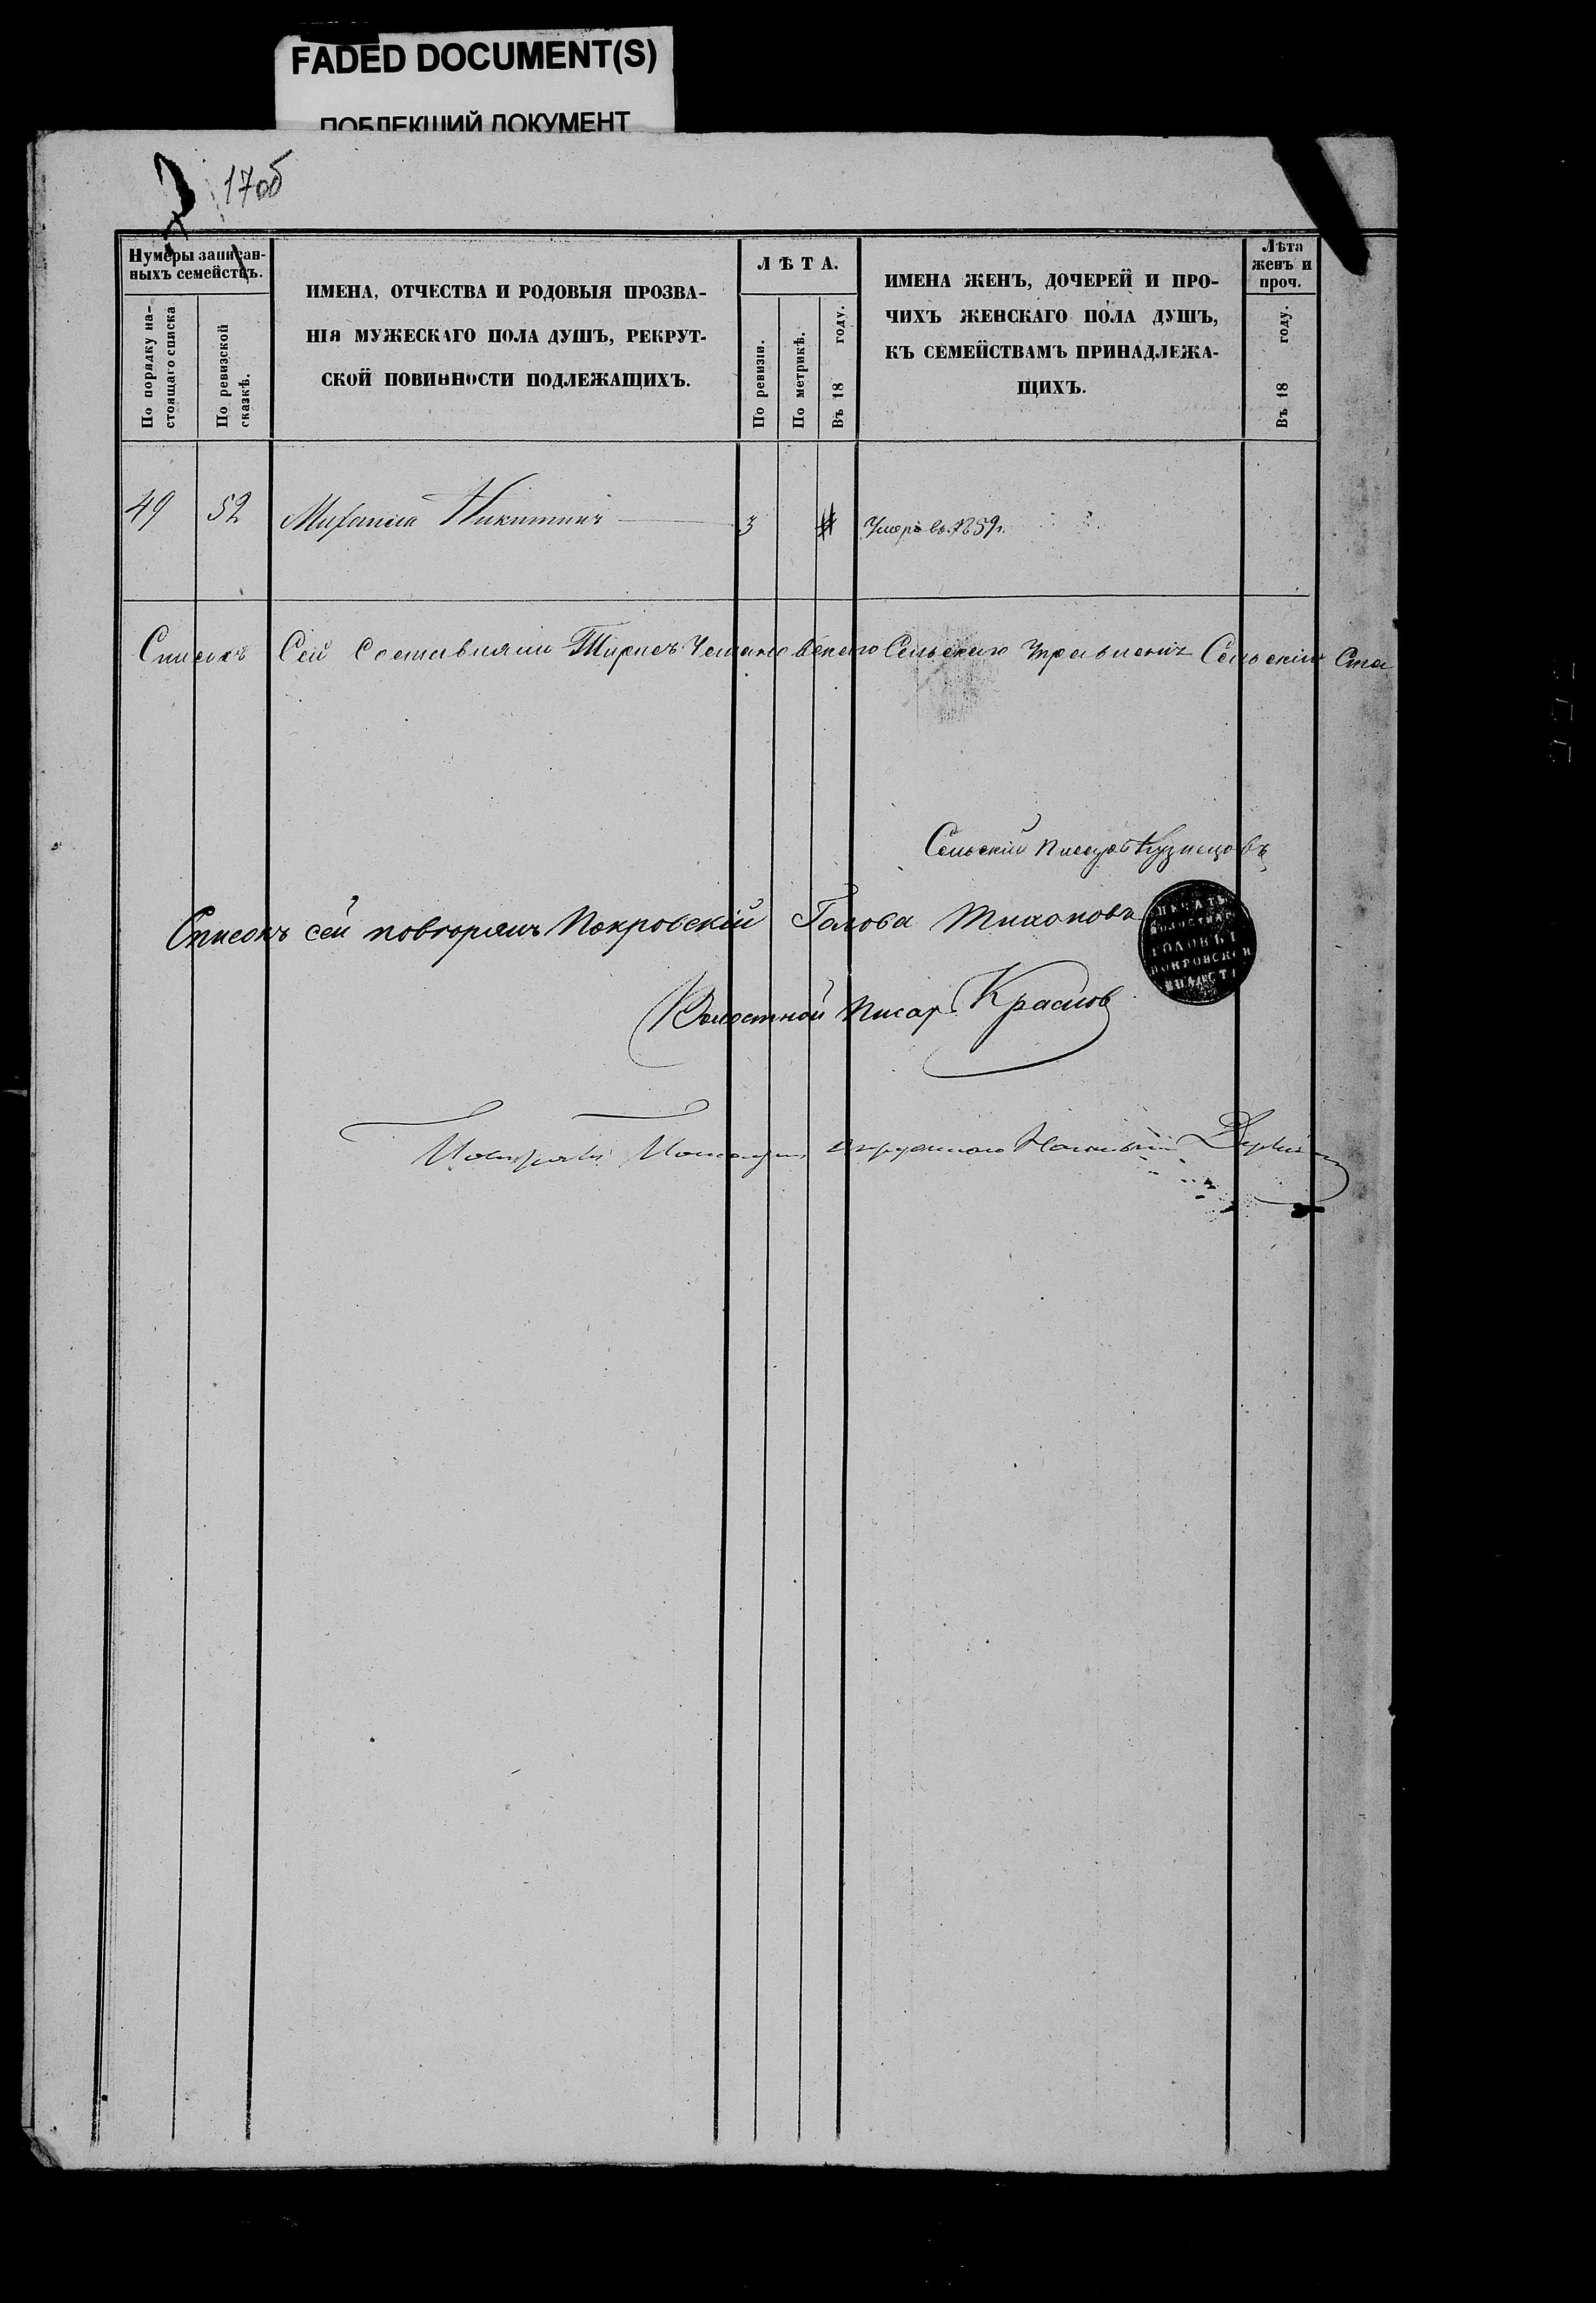 FADED DOCUMENT(S)
ПОБЛЕКШИЙ ДОКУМЕНТ
17об
Нумеры записан-
ныхъ семействъ.
По порядку на-
стоящаго списка
По ревизской
сказкѣ.
ИМЕНА, ОТЧЕСТВА И РОДОВЫЯ ПРОЗВА-
НІЯ МУЖЕСКАГО ПОЛА ДУШЪ, РЕКРУТ-
СКОЙ ПОВИННОСТИ ПОДЛЕЖАЩИХЪ.
ЛѢТА.
По ревизіи.
По метрикѣ.
Въ 18 году.
ИМЕНА ЖЕНЪ, ДОЧЕРЕЙ И ПРО-
ЧИХЪ ЖЕНСКАГО ПОЛА ДУШЪ,
КЪ СЕМЕЙСТВАМЪ ПРИНАДЛЕЖА-
ЩИХЪ.
Лѣта
женъ и
проч.
Въ 18 году.
49 52 Михаила Никитинъ 3 Умеръ въ 1859г.
Списокъ Сей Составляли Сельскаго Управленія Сельскій Ста
Сельскій Писарь Кузнецовъ
Списокъ сей повторялъ Покровскій Голова Тихоновъ
ПЕЧАТЬ
ВОЛОСТНАГО
ГОЛОВЫ
ПОКРОВСКОЙ
ВОЛОСТИ
Волостной Писар Краснов
Окружнаго Начальника